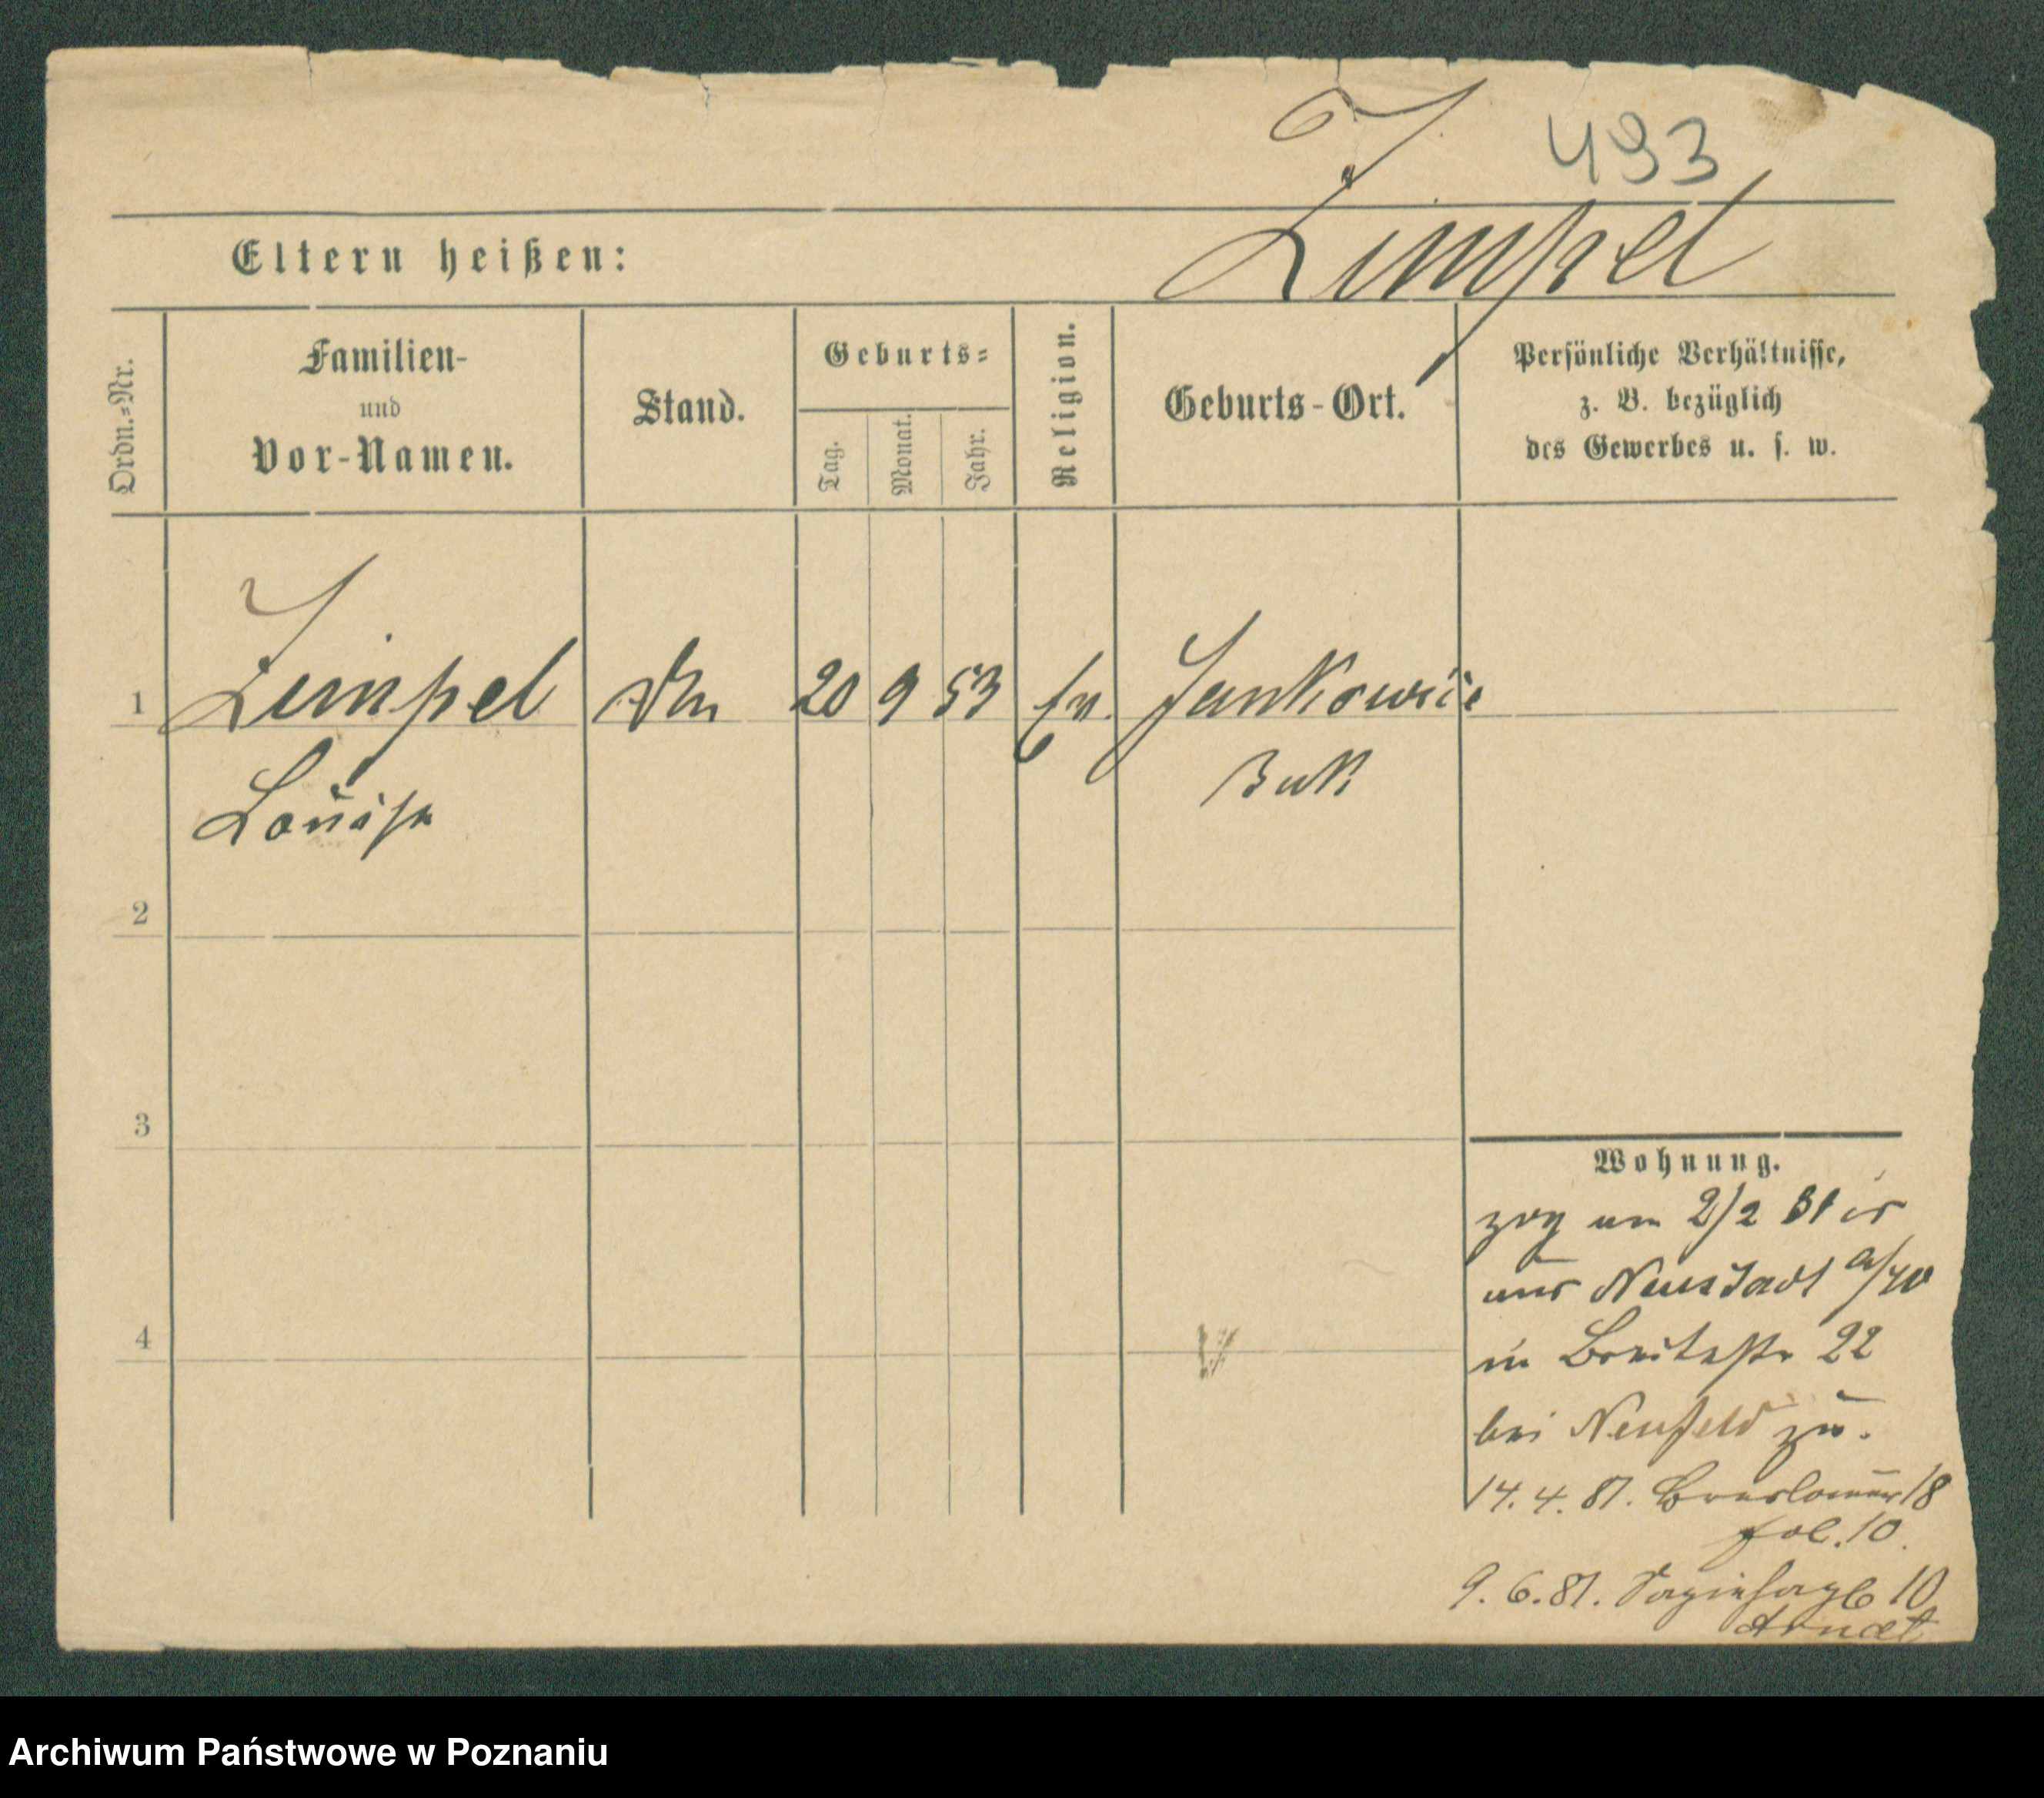 493
Zimpel
Eltern heißen:
Ordn.=Nr.
Familien-
und
Vor-Namen.
Stand.
Geburts=
Tag.
Monat.
Jahr.
Religion.
Geburts-Ort.
Persönliche Verhältnisse,
z. B. bezüglich
des Gewerbes u. s. w.
1
Zimpel
20
9
53
Ev.
Jankowice
Louise
Buk
2
3
4
Wohnung.
zog am 2/2 81
aus Neustadt
in Breitestr 22
bei Neufeld zu.
14. 4. 81. Breslauer 18
9. 6. 81. 10
Arndt
Archiwum Państwowe w Poznaniu